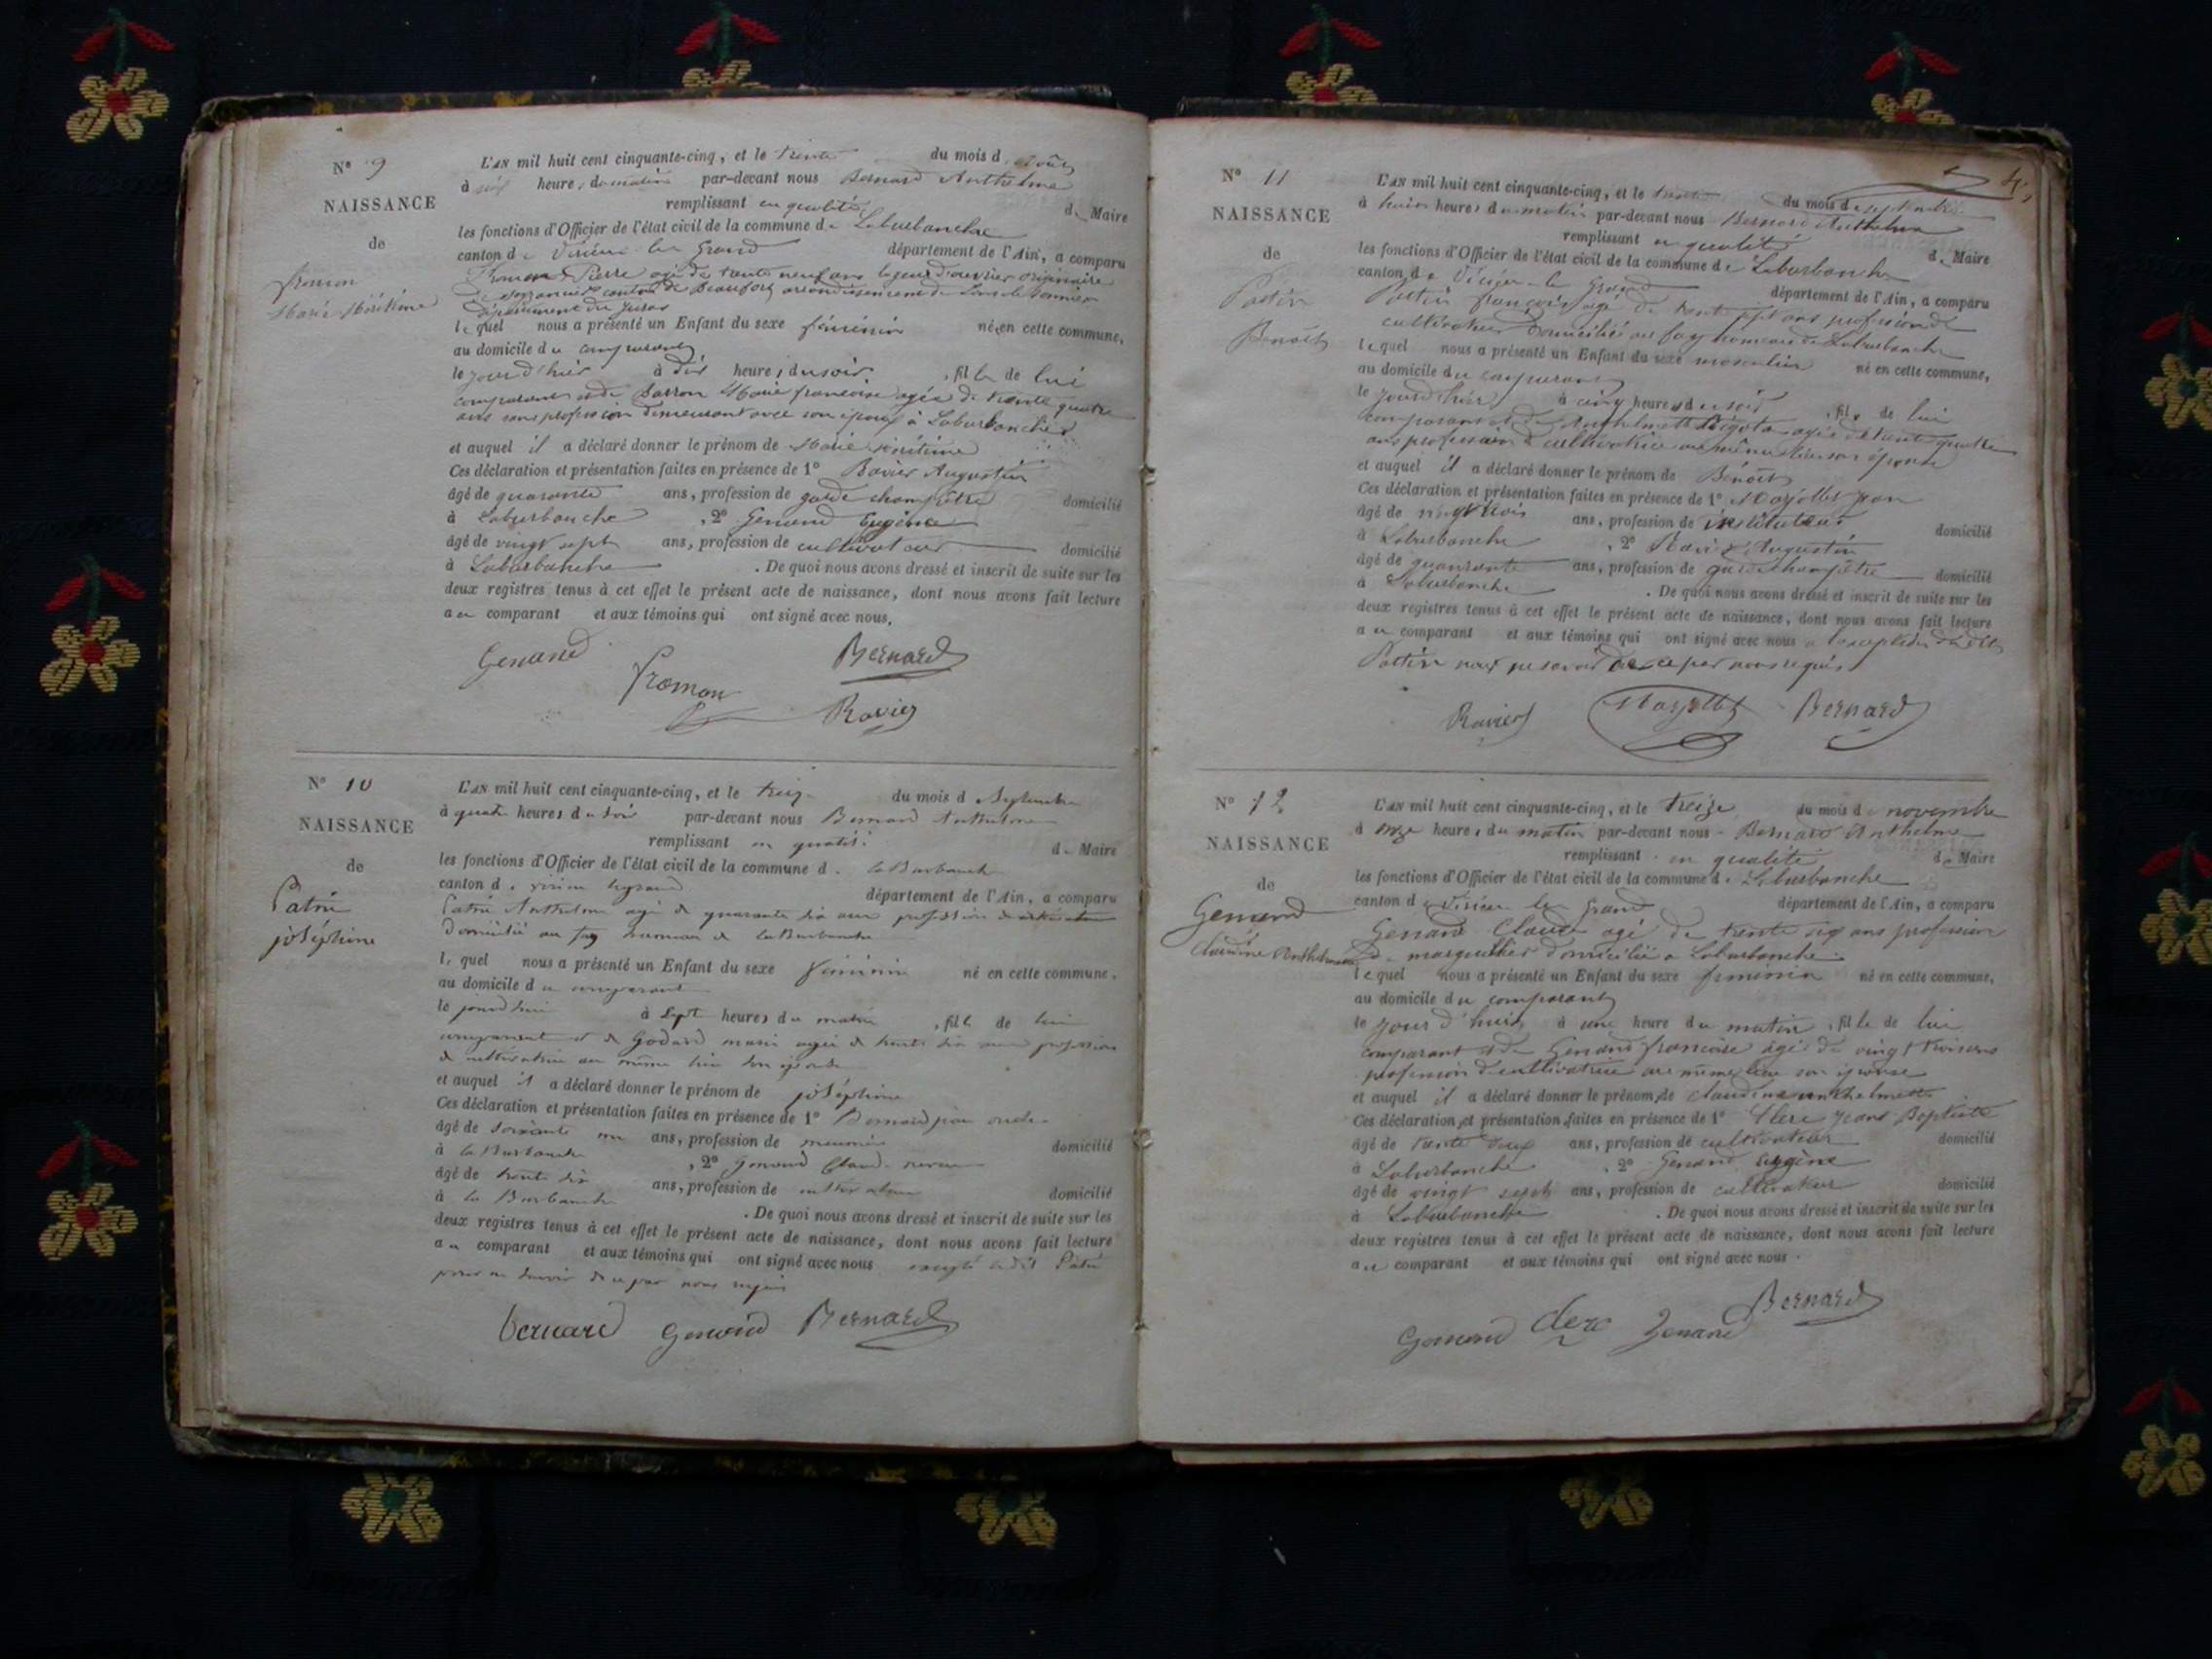 N° 9
NAISSANCE
de
fromon
Marie
L'AN mil huit cent cinquante-cinq, et le trente du mois d août
à six heures du matin par-devant nous Bernard Anthelme
remplissant en qualité de Maire
les fonctions d'Officier de l'état civil de la commune de Laburbanche
canton de Virieu le Grand département de l'Ain, a comparu
Pierre agé de trente neuf ans ouvrier originaire
canton de Beaufort arrondissement de
département du Jura
lequel nous a présenté un Enfant du sexe féminin né en cette commune,
au domicile du comparant
le jour d'hier à dix heures du soir, fille de lui
comparant et de Marie françoise agée de trente quatre
ans sans profession demeurant avec son époux à Laburbanche
et auquel il a déclaré donner le prénom de Marie
Ces déclaration et présentation faites en présence de 1° Ravier Augustin
âgé de quarante ans, profession de garde champêtre domicilié
à Laburbanche, 2° Genand Eugène
âgé de vingt sept ans, profession de cultivateur domicilié
à Laburbanche. De quoi nous avons dressé et inscrit de suite sur les
deux registres tenus à cet effet le présent acte de naissance, dont nous avons fait lecture
au comparant et aux témoins qui ont signé avec nous.
Genand fromon Bernard
Ravier
N° 10
NAISSANCE
de
Patin
joséphine
L'AN mil huit cent cinquante-cinq, et le treize du mois d Septembre
à quatre heures du soir par-devant nous Bernard Anthelme
remplissant en qualité de Maire
les fonctions d'Officier de l'état civil de la commune de la Burbanche
canton de virieu legrand département de l'Ain, a comparu
Patin Anthelme agé de quarante six ans profession de cultivateur
Domicilié au fay hameau de la Burbanche
lequel nous a présenté un Enfant du sexe féminin né en cette commune,
au domicile du comparant
le jourd'hui à sept heures du matin, fille de lui
comparant et de Godard marie agée de trente six ans profession
de cultivatrice au même lieu son épouse
et auquel il a déclaré donner le prénom de joséphine
Ces déclaration et présentation faites en présence de 1° Bernard
âgé de soixante un ans, profession de meunier domicilié
à la Burbanche, 2° Genand Claude
âgé de trente six ans, profession de cultivateur domicilié
à la Burbanche. De quoi nous avons dressé et inscrit de suite sur les
deux registres tenus à cet effet le présent acte de naissance, dont nous avons fait lecture
au comparant et aux témoins qui ont signé avec nous excepté ledit Patin
pour ne savoir de ce par nous requis
bernard Genand Bernard
N° 11
NAISSANCE
de
Patin
Benoit
L'AN mil huit cent cinquante-cinq, et le trente du mois de septembre
à huit heures du matin par-devant nous Bernard Anthelme
remplissant en qualité de Maire
les fonctions d'Officier de l'état civil de la commune de Laburbanche
canton de Virieu le Grand département de l'Ain, a comparu
Patin françois agé de trente sept ans profession de
cultivateur domicilié au fay hameau de Laburbanche
lequel nous a présenté un Enfant du sexe masculin né en cette commune,
au domicile du comparant
le jour d'hier à cinq heures du soir, fils de lui
comparant et de Anthelmette agée de trente quatre
ans profession de cultivatrice au même lieu son épouse
et auquel il a déclaré donner le prénom de Benoit
Ces déclaration et présentation faites en présence de 1° jean
âgé de vingt trois ans, profession de instituteur domicilié
à Laburbanche, 2° Ravier Augustin
âgé de quarante ans, profession de garde champêtre domicilié
à Laburbanche. De quoi nous avons dressé et inscrit de suite sur les
deux registres tenus à cet effet le présent acte de naissance, dont nous avons fait lecture
au comparant et aux témoins qui ont signé avec nous à l'exception dudit
Patin pour ne savoir de ce par nous requis
Ravier Bernard
N° 12
NAISSANCE
de
Genand
Claudine Anthelmette
L'AN mil huit cent cinquante-cinq, et le treize du mois de novembre
à onze heures du matin par-devant nous Bernard Anthelme
remplissant en qualité de Maire
les fonctions d'Officier de l'état civil de la commune de Laburbanche
canton de Virieu le Grand département de l'Ain, a comparu
Genand Claude agé de trente six ans profession
de marguillier domicilié a Laburbanche
lequel nous a présenté un Enfant du sexe feminin né en cette commune,
au domicile du comparant
le jour d'hui à une heure du matin, fille de lui
comparant et de Genand françoise âgée de vingt trois ans
profession de cultivatrice au même lieu son épouse
et auquel il a déclaré donner le prénom de claudine anthelmette
Ces déclaration et présentation faites en présence de 1° Clerc Jean Baptiste
âgé de trente deux ans, profession de cultivateur domicilié
à Laburbanche, 2° Genand Eugène
âgé de vingt sept ans, profession de cultivateur domicilié
à Laburbanche. De quoi nous avons dressé et inscrit de suite sur les
deux registres tenus à cet effet le présent acte de naissance, dont nous avons fait lecture
au comparant et aux témoins qui ont signé avec nous.
Genand Clerc Genand Bernard